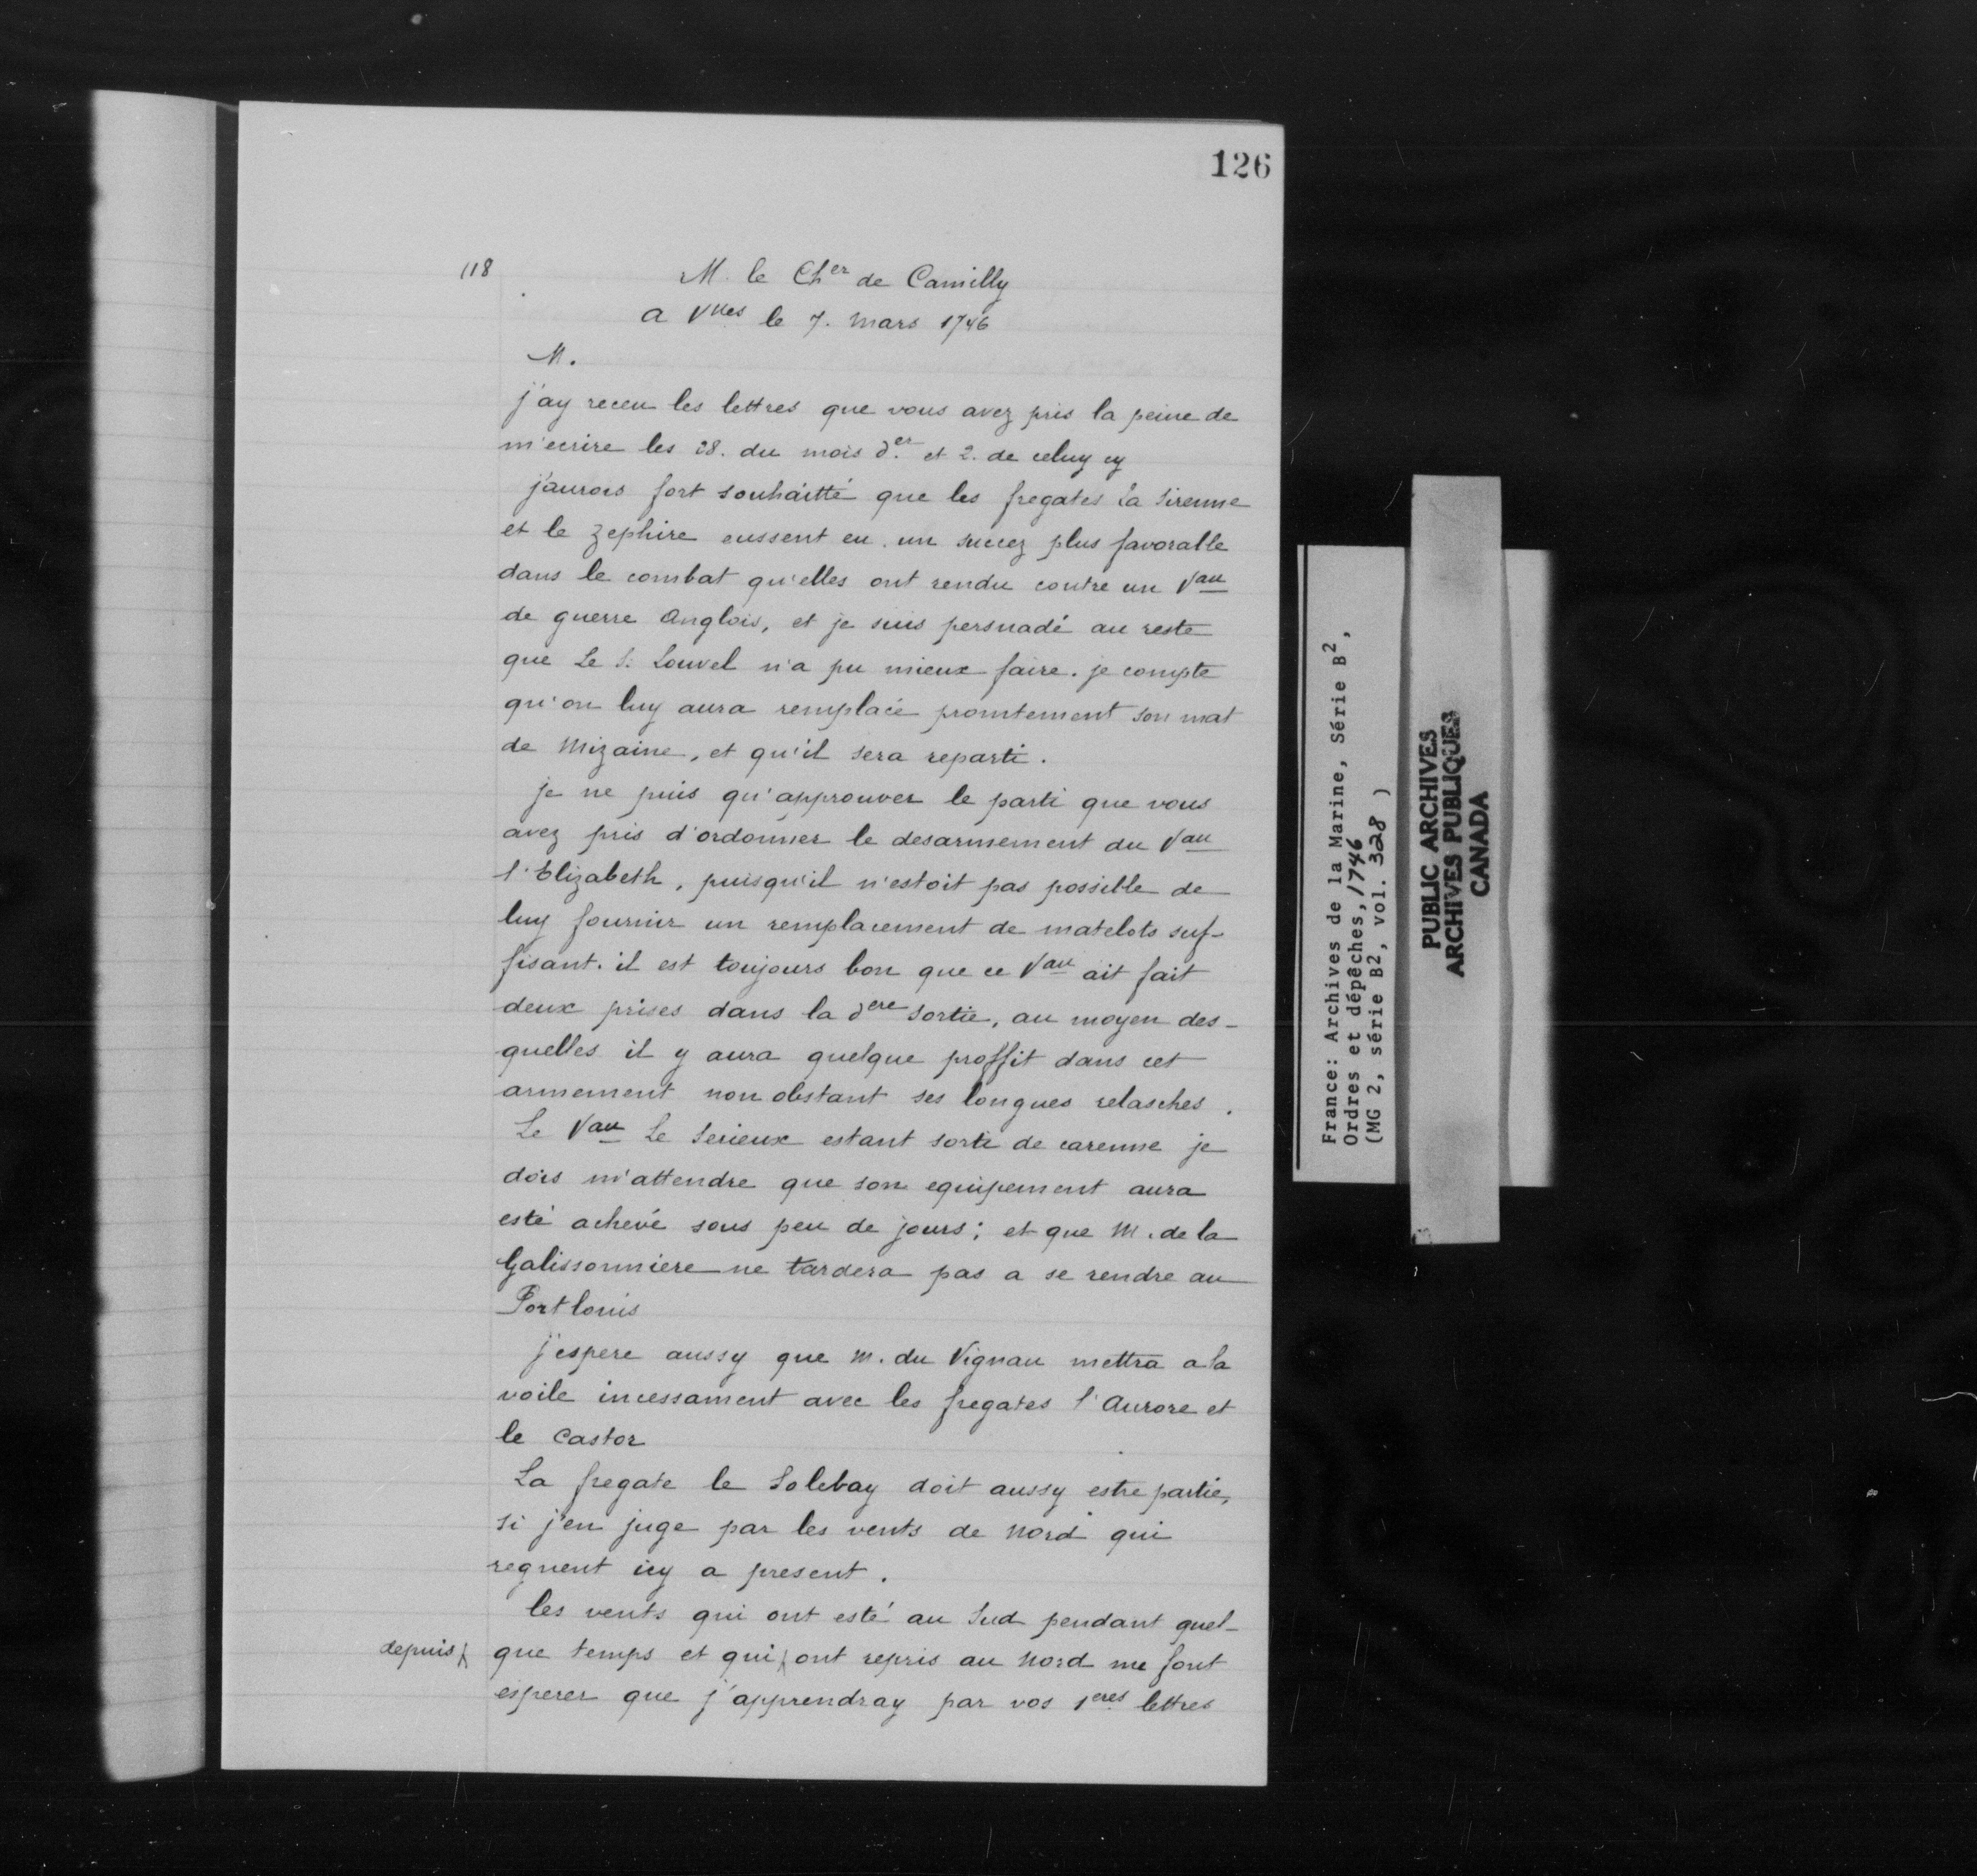 126
118
M. le Cher de Camilly
a Vlles le 7. mars 1746
M.
j'ay receu les lettres que vous avez pris la peine de
m'ecrire les 28. du mois der. et 2. de celuy cy
j'aurois fort souhaitté que les fregates La Sirenne
et le Zephire eussent eu un succez plus favorable
dans le combat qu'elles ont rendu contre un Vau
de guerre Anglois, et je suis persuadé au reste
que Le S. Louvel n'a pu mieux faire. je compte
qu'on luy aura remplacé promtement son mat
de Mizaine, et qu'il sera reparti.
je ne puis qu'approuver le parti que vous
avez pris d'ordonner le desarmement du Vau
l'Elizabeth, puisqu'il n'estoit pas possible de
luy fournir un remplacement de matelots suf-
fisant. il est toujours bon que ce Vau ait fait
deux prises dans la dere sortie, au moyen des-
quelles il y aura quelque proffit dans cet
armement non obstant ses longues relasches.
Le Vau Le Serieux estant sorti de carenne je
dois m'attendre que son equipement aura
esté achevé sous peu de jours; et que M. de la
Galissonniere ne tardera pas a se rendre au
Port louis
j'espere aussy que m. du Vignau mettra a la
voile incessament avec les fregates l'Aurore et
le Castor
La fregate le Solebay doit aussy estre partie,
si j'en juge par les vents de Nord qui
regnent icy a present.
les vents qui ont esté au Sud pendant quel-
depuis que temps et qui ont repris au Nord me font
esperer que j'apprendray par vos 1eres lettres
France: Archives de la Marine, Série B2,
Ordres et dépêches, 1746
(MG 2, série B2, vol. 328 )
PUBLIC ARCHIVES
ARCHIVES PUBLIQUES
CANADA